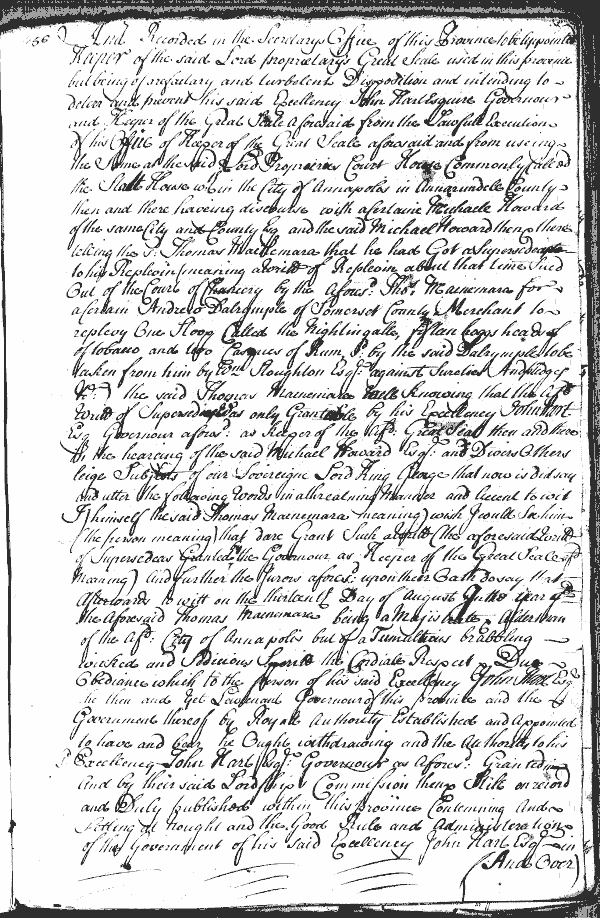 And Recorded in the Secretarys Office of this Province to be appointed
Keeper of the said Lord proprietarys Great Seale used in this province
but being of refractary and turbulent Disposition and intending to
deter and prevent his said Excellency John Hart Esquire Governour
and Keeper of the Great Seale aforesaid from the Lawfull Execution
of his Office of Keeper of the Great Seale aforesaid and from useing
the Same as the said Lord Proprietaries Court House Commonly called
the Statt House within the City of Annapolis in Annarundell County
then and there haveing discourse with a Certaine Michaell Howard
of the same City and County Esq and the said Michaell Howard then & there
telling the sd. Thomas Macnemara that he had Got a Supersedeas
to his Replevin (meaning a Writt of Replevin about that time Sued
Out of the Court of Chancery by the aforesd. Thos. Macnemara for
a Certain Andrew Dalrymple of Somerset County Merchant to
replevy One Sloop Called the Nightingale, fifteen hogs heads
of tobacco and two Casques of Rum &c. by the said Dalrymple to be
taken from him by Wm. Stoughton Esqr. against Sureties And pledges
&c.) the said Thomas Macnemara well Knowing that the afd.
Writt of Supersedeas only Grantable by his Excellency John Hart
Esq Governour aforesd: as Keeper of the afd. Great Seal then and there
in the heareing of the said Michael Howard Esqr. and Divers Others
leige Subjects of our Sovereigne Lord King George that now is did say
and utter the following Words in a threatning Manner and accent to wit
I (himself the said Thomas Macnemara meaning) wish I could See him
(the person meaning) that dare Grant Such a Writt (the aforesaid Writt
of Supersedeas Granted by the Governour as Keeper of the Great Seale
Meaning) And further the Jurors aforesd: upon their Oath do say that
Afterwards to witt on the thirtieth Day of August in the Year afd.
the Aforesaid Thomas Macnemara being a Majistrate & Alderman
of the Afd: City of Annapolis but of a Tumultuous brabbling
wicked and Sedicious Spiritt the Cordiale Respect & Due
Obediance which to the person of his said Excellency John Hart Esqr
he then and yet Lieutenant Governour of this province and the
Government thereof by Royale Authority Established and Appointed
to have and bear he Ought withdrawing and the Authority to his
Excellency John Hart Esqr: Governour as Aforesd: Granted
And by their said Lordships Commission then & Still on record
and Duly published within this Province Contemning And
Setting at nought and the Good Rule and Administeration
of the Government of his said Excellency John Hart Esqr in
(And Over)